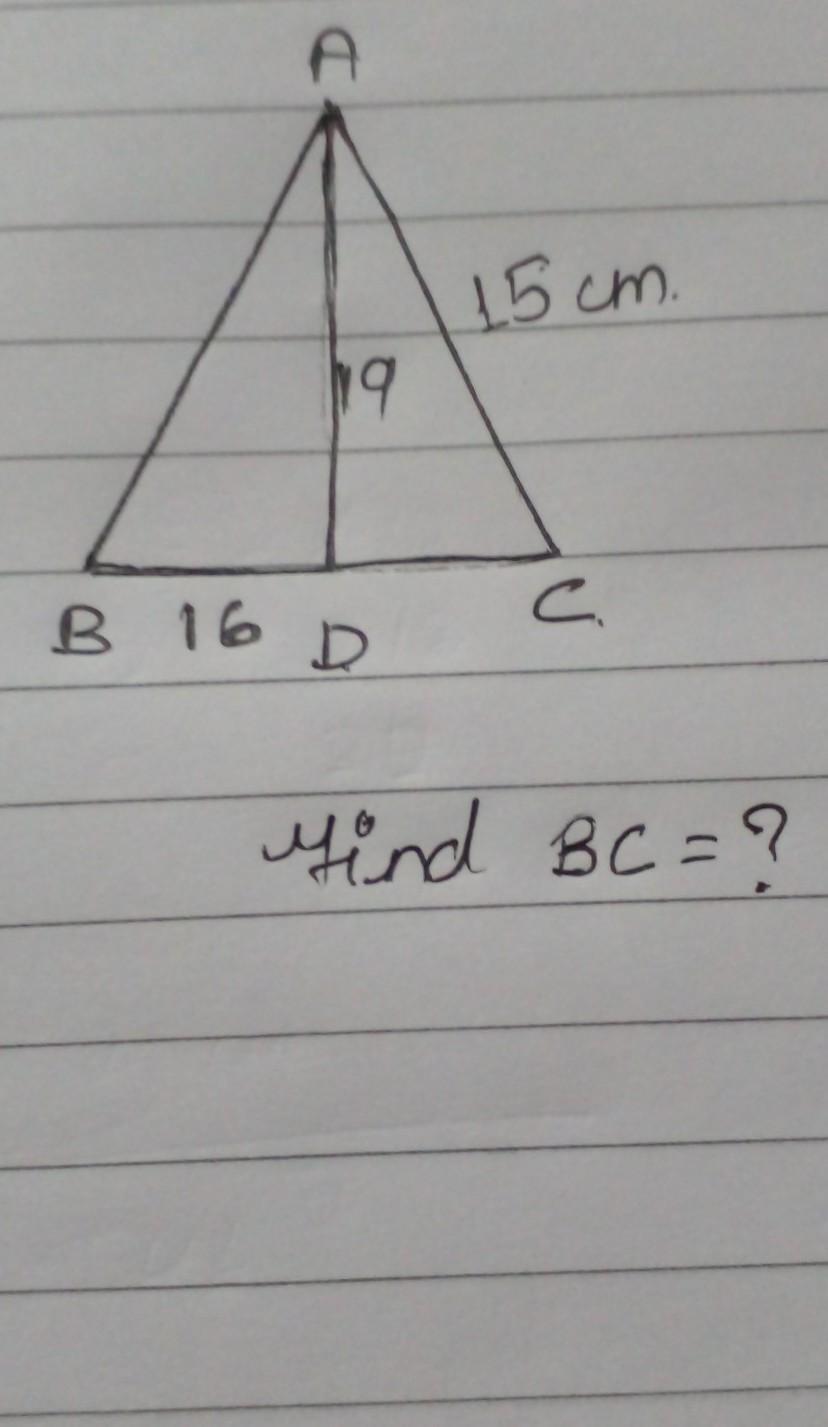 A
15 cm.
19
B 16 D C.
Find BC = ?